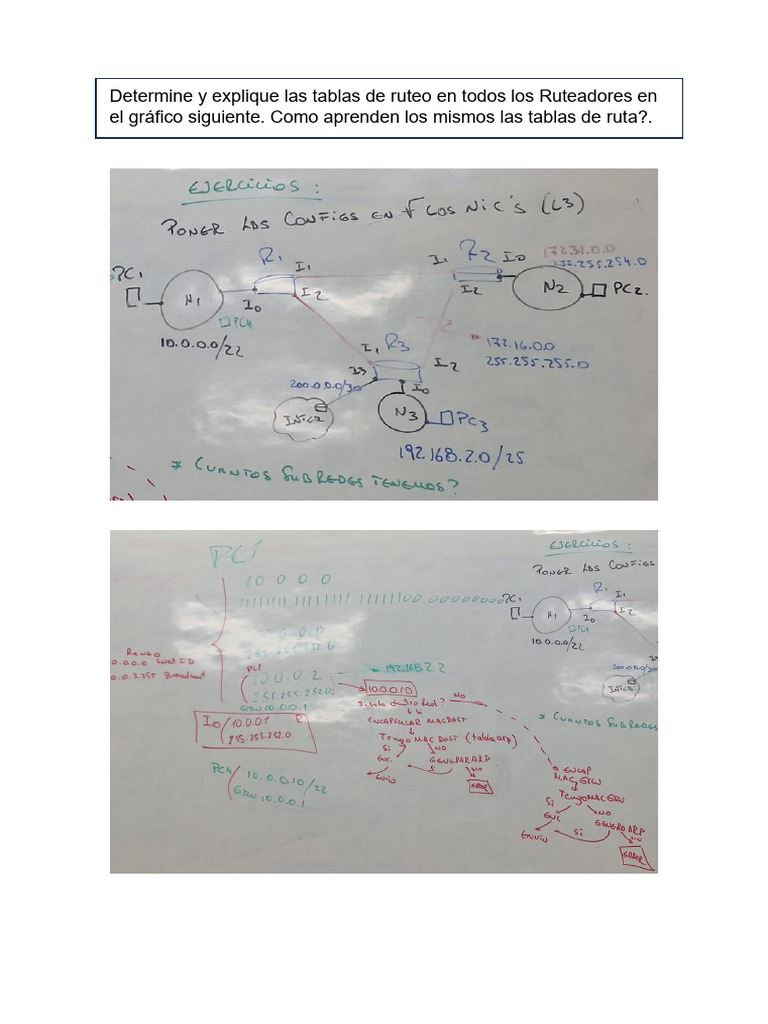 Determine y explique las tablas de ruteo en todos los Ruteadores en
el gráfico siguiente. Como aprenden los mismos las tablas de ruta?.
EJERCICIOS :
PONER LAS CONFIGS EN √ LOS NIC'S (L3)
PC1
N1
I0
R1
I1
I2
PC4
10.0.0.0/22
I1
R2
I0
I2
172.31.0.0
255.255.254.0
N2
PC2.
172.16.0.0
255.255.255.0
I1
R3
I2
I3
I0
200.0.0.0/30
N3
PC3
192.168.2.0/25
* CUANTOS SUBREDES TENEMOS?
PC1
10.0.0.0
255.255.252.0
RANGO
PC1
10.0.0.2
255.255.252.0
GTW 10.0.0.1
I0 / 10.0.0.1
255.255.252.0
PC4
10.0.0.10/22
GTW 10.0.0.1
192.168.2.2
10.0.0.10
NO
SI
ENCAPSULAR MAC DEST
TENGO MAC DEST (tabla arp)
SI
NO
ENC.
GENERAR ARP
SI
NO
ENVIO
ERROR
ENCAP
MAC GTW
TENGO MAC GTW
SI
NO
ENC
GENERAR ARP
SI
NO
ENVIO
ERROR
EJERCICIOS :
PONER LAS CONFIGS
PC1
N1
I0
R1
I1
I2
PC4
10.0.0.0/22
200.0.0.0/30
* CUANTOS SUBREDES